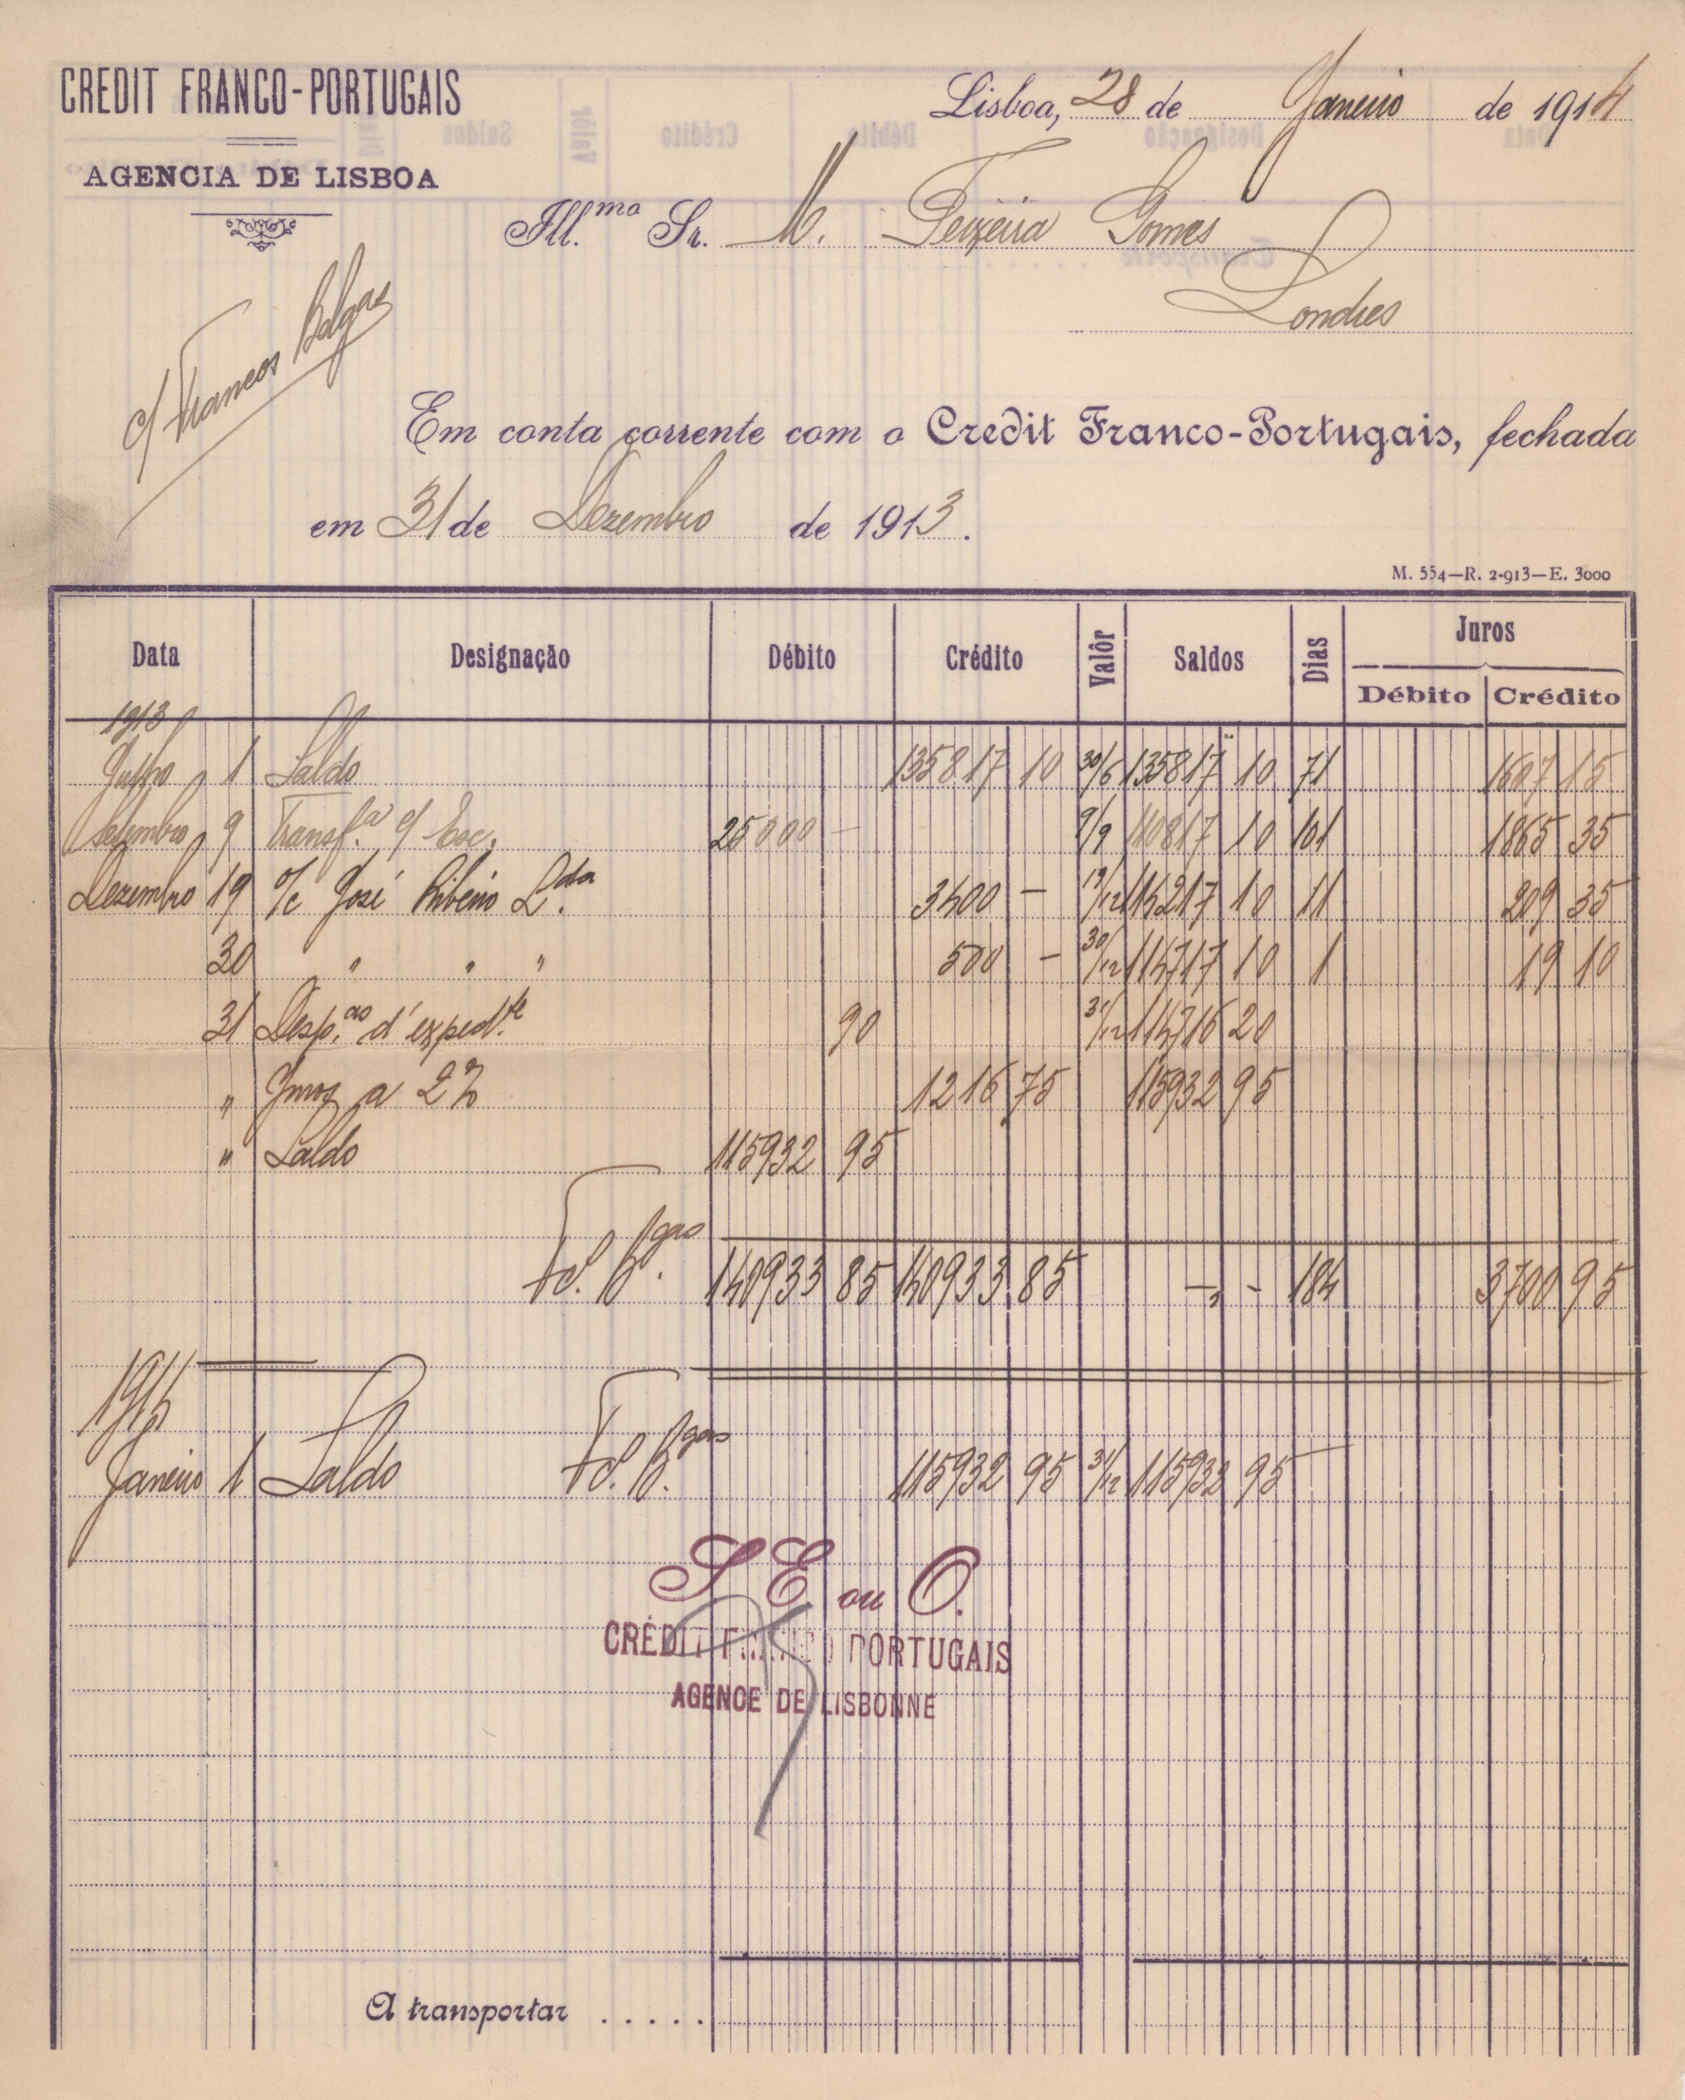 CREDIT FRANCO-PORTUGAIS
AGENCIA DE LISBOA
Lisboa, 28 de Janeiro de 1914
Ill.mo Sr. M. Teixeira Gomes
Londres
c/ Francos Belgas
Em conta corrente com o Credit Franco-Portugais, fechada
em 31 de Dezembro de 1913.
M. 554—R. 2-913—E. 3000
Data Designação Débito Crédito Valôr Saldos Dias Juros
Débito Crédito
1913
Julho 1 Saldo 135817 10 30/6 135817 10 71 1607 15
Setembro 9 Transf.a c/ Esc. 25000 — 9/9 110817 10 101 1865 35
Dezembro 19 o/c José Ribeiro L.da 3400 — 19/12 114217 10 11 209 35
30 " " " 500 — 30/12 114717 10 1 19 10
31 Desp.as d'exped.te 90 31/12 114716 20
" Juros a 2% 1216 75 115932 95
" Saldo 115932 95
Fcs. B.gas 140933 85 140933 85 —,- 184 3700 95
1914
Janeiro 1 Saldo Fcs. B.gas 115932 95 31/12 115932 95
S. E. ou O.
CRÉDIT FRANCO PORTUGAIS
AGENCE DE LISBONNE
A transportar . . . . .